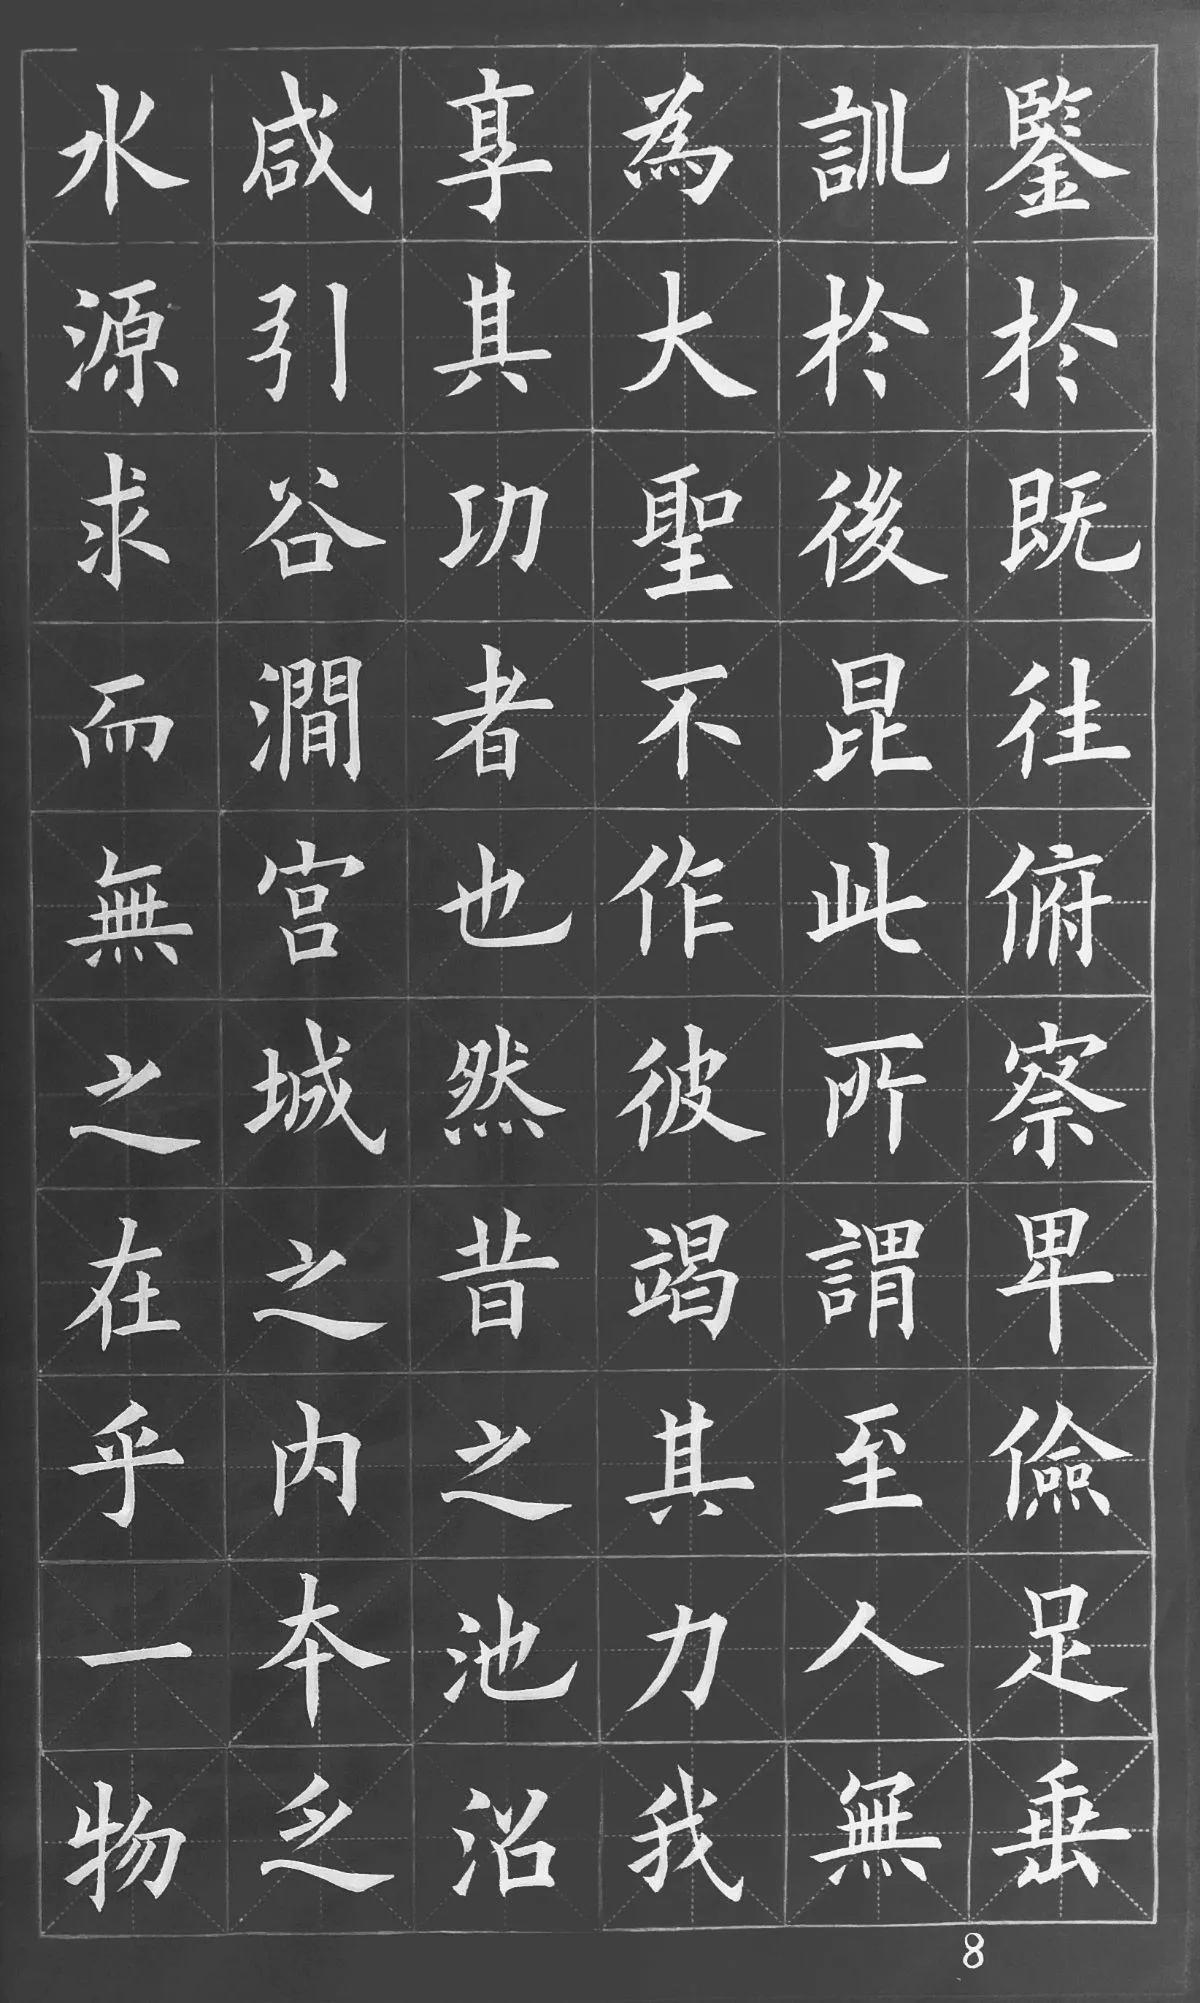 鑒於既往俯察卑儉足垂
訓於後昆此所謂至人無
為大聖不作彼竭其力我
享其功者也然昔之池沼
咸引谷澗宮城之内本乏
水源求而無之在乎一物
8